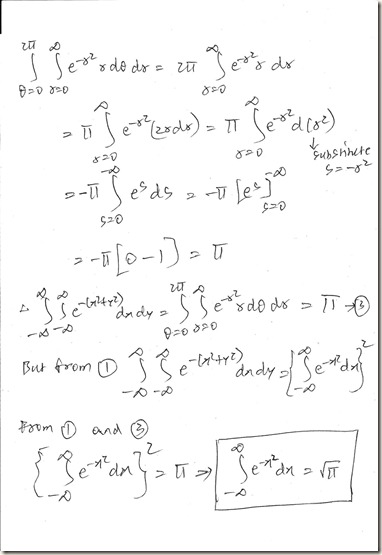 ∫_{θ=0}^{2π} ∫_{r=0}^{∞} e^{-r²} r dθ dr = 2π ∫_{r=0}^{∞} e^{-r²} r dr
= π ∫_{r=0}^{∞} e^{-r²} (2r dr) = π ∫_{r=0}^{∞} e^{-r²} d(r²)
↓ substitute s = -r²
= -π ∫_{s=0}^{-∞} e^s ds = -π [e^s]_{s=0}^{-∞}
= -π [0 - 1] = π
∫_{-∞}^{∞} ∫_{-∞}^{∞} e^{-(x²+y²)} dx dy = ∫_{θ=0}^{2π} ∫_{r=0}^{∞} e^{-r²} r dθ dr = π → ③
But from ① ∫_{-∞}^{∞} ∫_{-∞}^{∞} e^{-(x²+y²)} dx dy = {∫_{-∞}^{∞} e^{-x²} dx}²
From ① and ③
{∫_{-∞}^{∞} e^{-x²} dx}² = π ⇒ ∫_{-∞}^{∞} e^{-x²} dx = √π